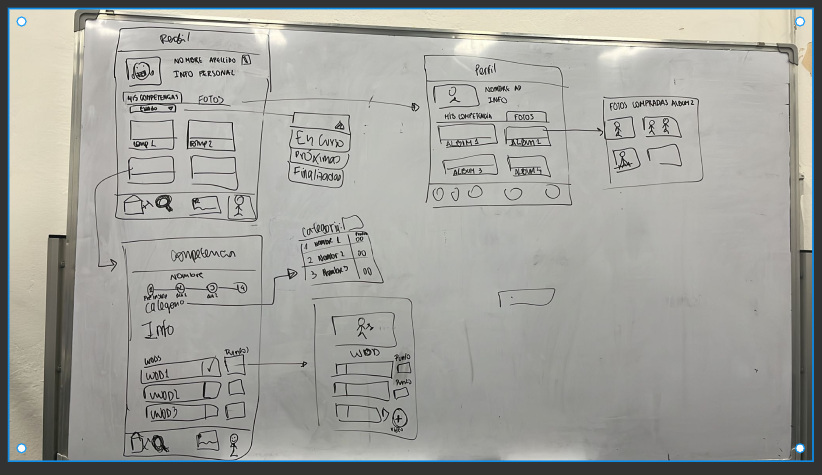 Perfil
NOMBRE APELLIDO
INFO PERSONAL
MIS COMPETENCIAS
FOTOS
ESTADO
COMP 1
COMP 2
En Curso
Próximas
Finalizadas
Perfil
NOMBRE AP
INFO
MIS COMPETENCIA
FOTOS
ALBUM 1
ALBUM 2
ALBUM 3
FOTOS COMPRADAS ALBUM 2
Competencia
NOMBRE
Categoria
Info
WODS
Puntos
WOD1
WOD2
WOD3
Categoria 1
1 Nombre 1 00
2 Nombre 2 00
3 Nombre 3 00
WOD
Punto
Punto